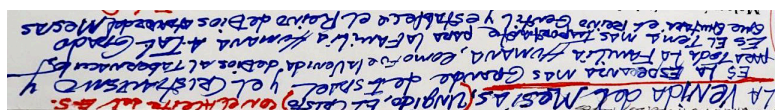 LA VENIDA DEL MESIAS (UNGIDO, EL CRISTO) CON EL ACEITE DEL E.S.
ES LA ESPERANZA MAS GRANDE DE ISRAEL Y EL CRISTIANISMO Y
PARA TODA LA FAMILIA HUMANA, COMO FUE LA VENIDA DE DIOS AL TABERNACULO.
ES EL TEMA MAS IMPORTANTE PARA LA FAMILIA HUMANA A TAL GRADO
QUE QUITARA EL REINO GENTIL Y ESTABLECE EL REINO DE DIOS MESAS